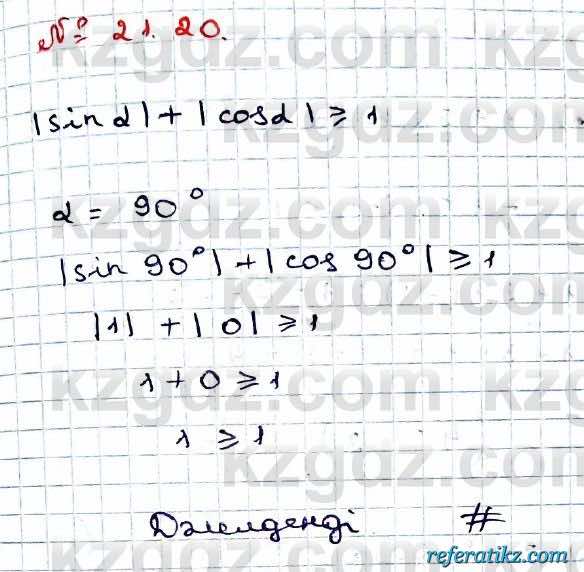 № 21.20.
|sin α| + |cos α| ⩾ 1
α = 90°
|sin 90°| + |cos 90°| ⩾ 1
|1| + |0| ⩾ 1
1 + 0 ⩾ 1
1 ⩾ 1
Дәлелденді #
kzgdz.com
referatikz.com